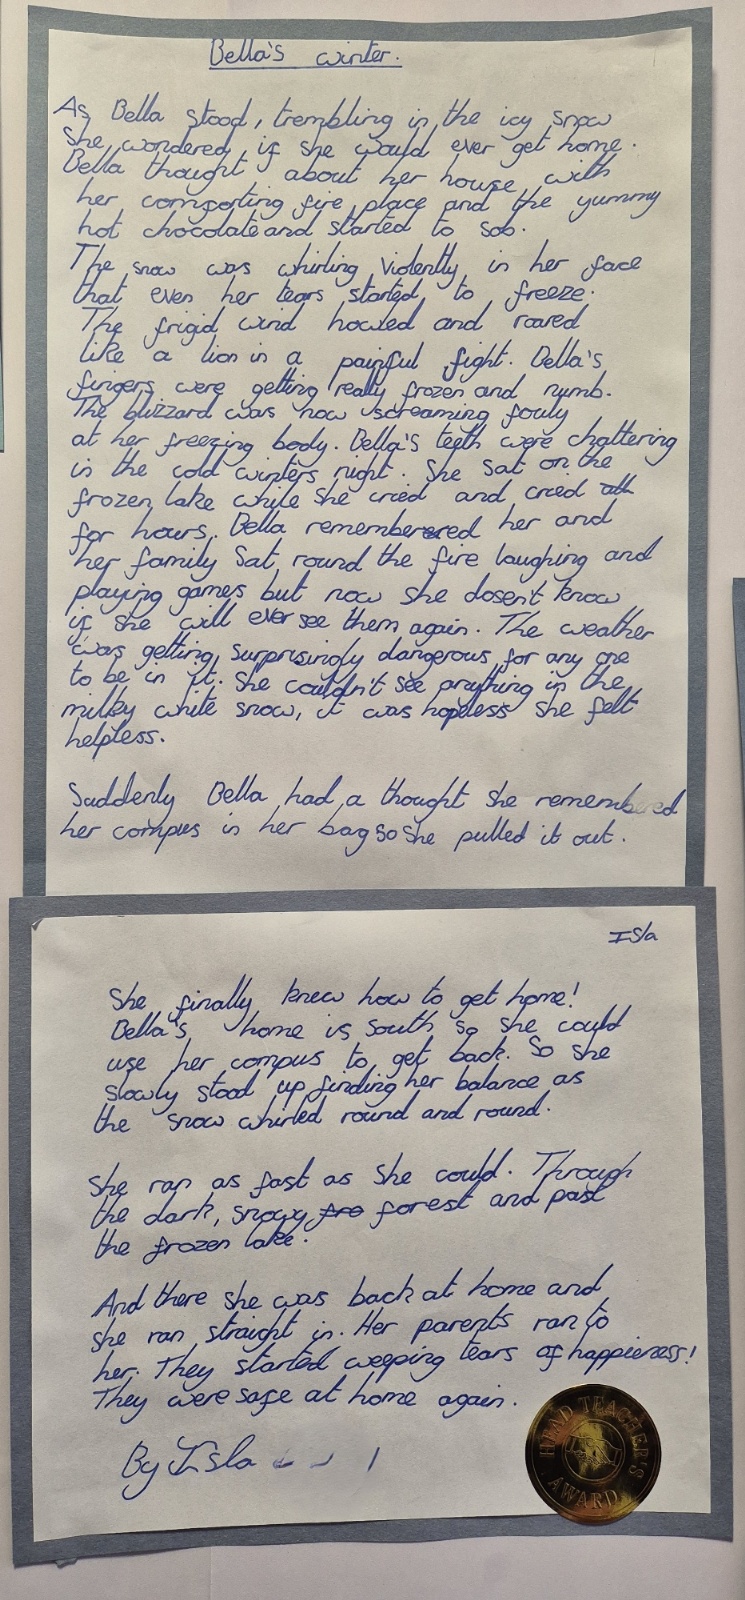 Bella's winter.
As Bella stood, trembling in the icy snow
she wondered if she would ever get home.
Bella thought about her house with
her comforting fire place and the yummy
hot chocolate and started to sob.
The snow was whirling violently in her face
that even her tears started to freeze.
The frigid wind howled and roared
like a lion in a painful fight. Bella's
fingers were getting really frozen and numb.
The blizzard was now screaming fouly
at her freezing body. Bella's teeth were chattering
in the cold winters night. She Sat on the
frozen lake while she cried and cried
for hours. Bella remembered her and
her family Sat round the fire laughing and
playing games but now she dosen't know
if she will ever see them again. The weather
was getting surprisingly dangerous for any one
to be in it. She couldn't see anything in the
milky white snow, it was hopeless she felt
helpless.
Suddenly Bella had a thought She remembered
her compus in her bag so She pulled it out.
Isla
She finally knew how to get home!
Bella's home is South so she could
use her compus to get back. So she
slowly stood up finding her balance as
the snow whirled round and round.
She ran as fast as She could. Through
the dark, snowy forest and past
the frozen lake.
And there she was back at home and
she ran straight in. Her parents ran to
her. They started weeping tears of happieness!
They were safe at home again.
By Isla
HEAD TEACHER'S
AWARD